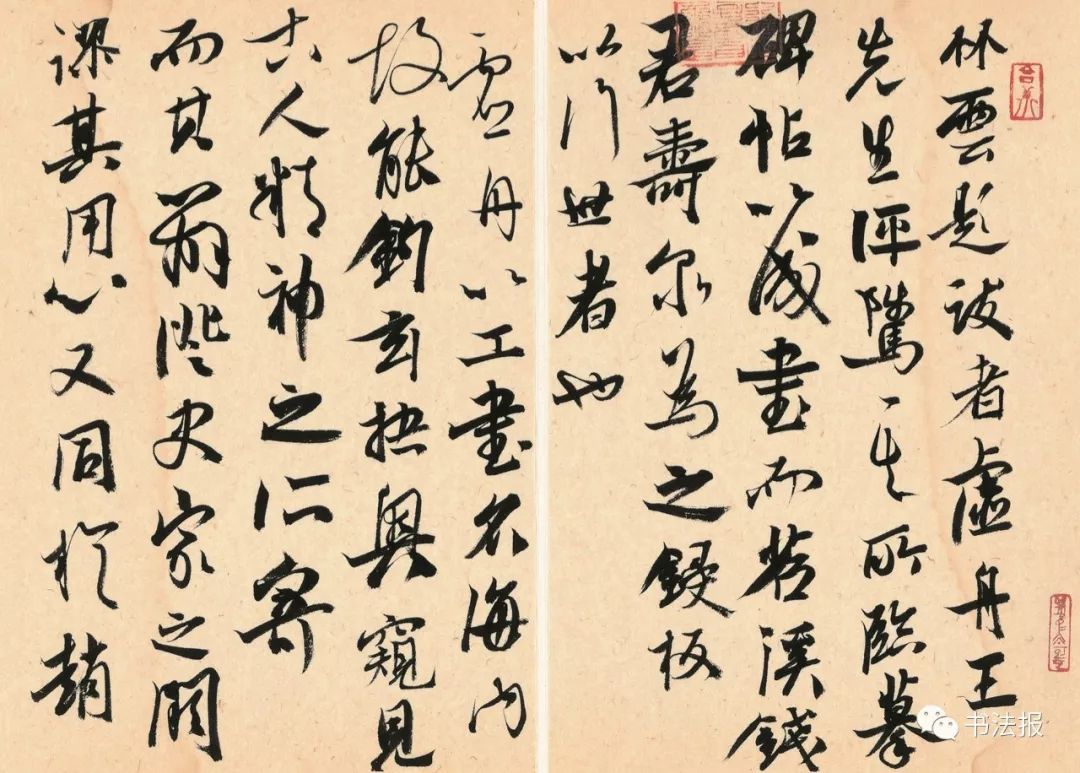 竹雲題跋者虛舟王
先生評騭其所臨摹
碑帖以成書而苕溪錢
君壽泉為之鋟板
以行世者也
虛舟以工書名海內
故能鉤玄抉奧窺見
古人精神之所寄
而其史家之闕
謬其用心又同於趙
书法报